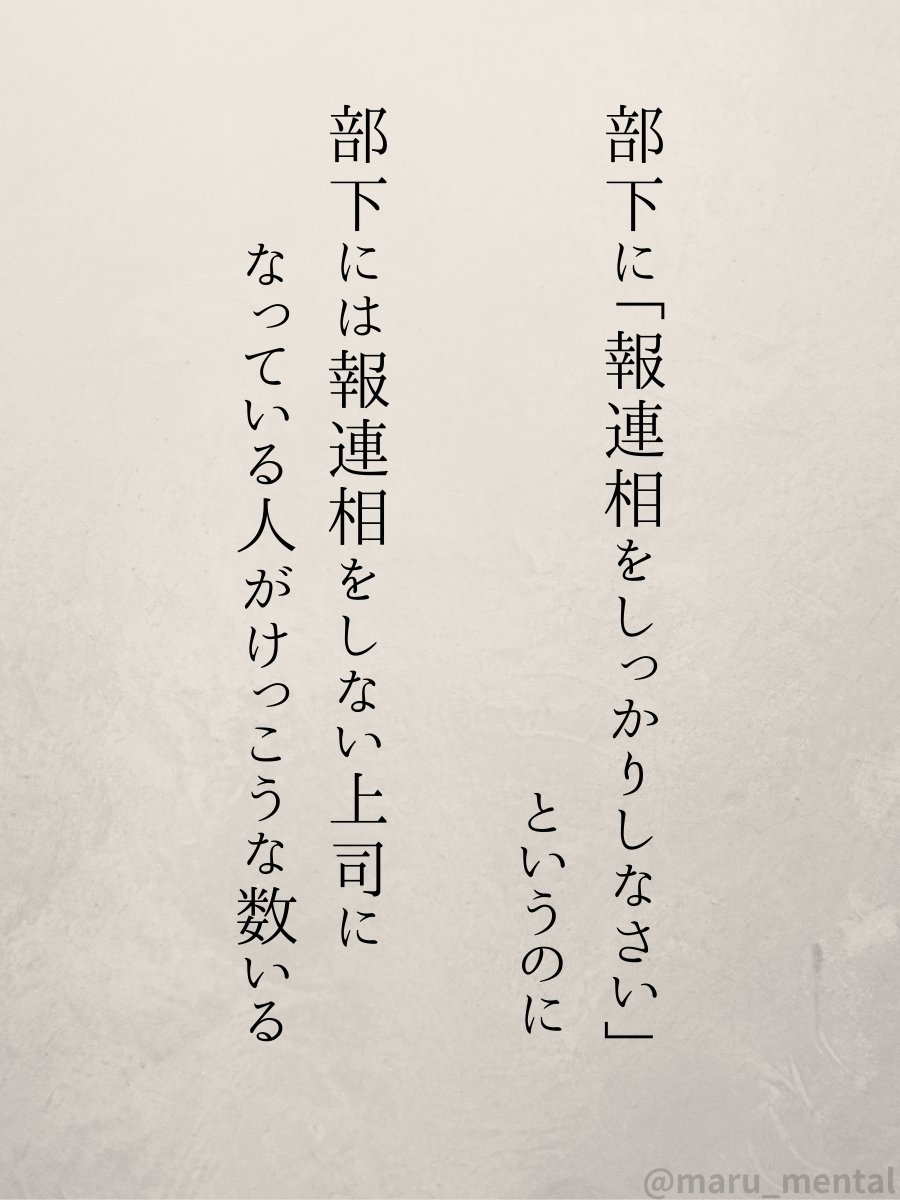 部下に「報連相をしっかりしなさい」
というのに
部下には報連相をしない上司に
なっている人がけっこうな数いる
@maru_mental